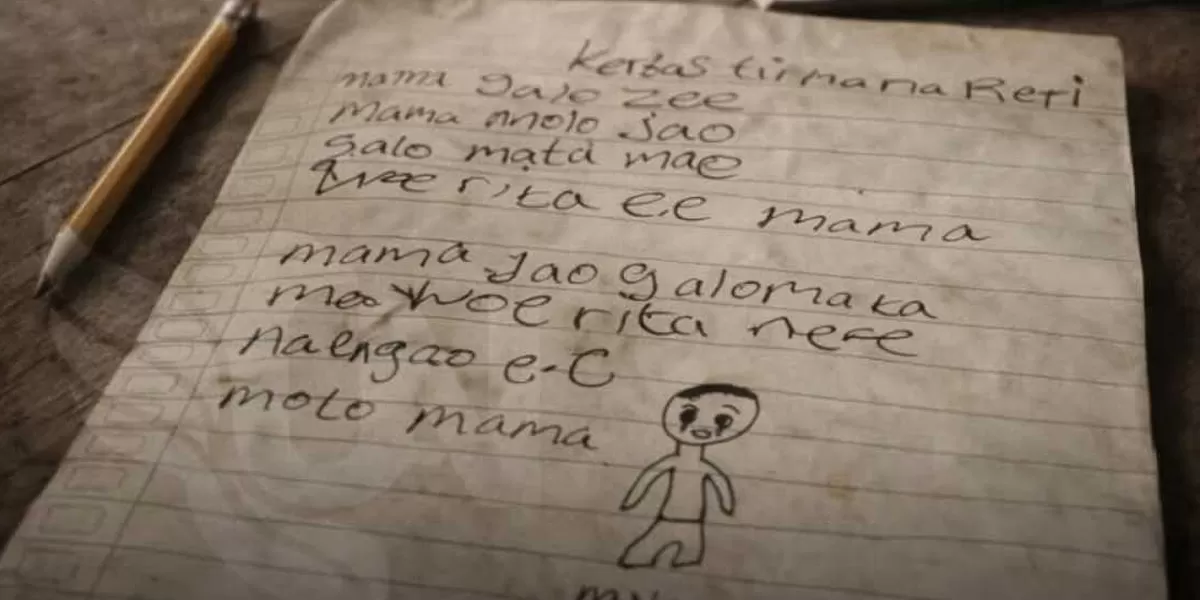 Kertas tirmana Reti
mama galo zee
mama molo Jao
galo mata mae
rita ee mama
mama Jao galo mata
mae woe rita nee
naengao e-e
molo mama